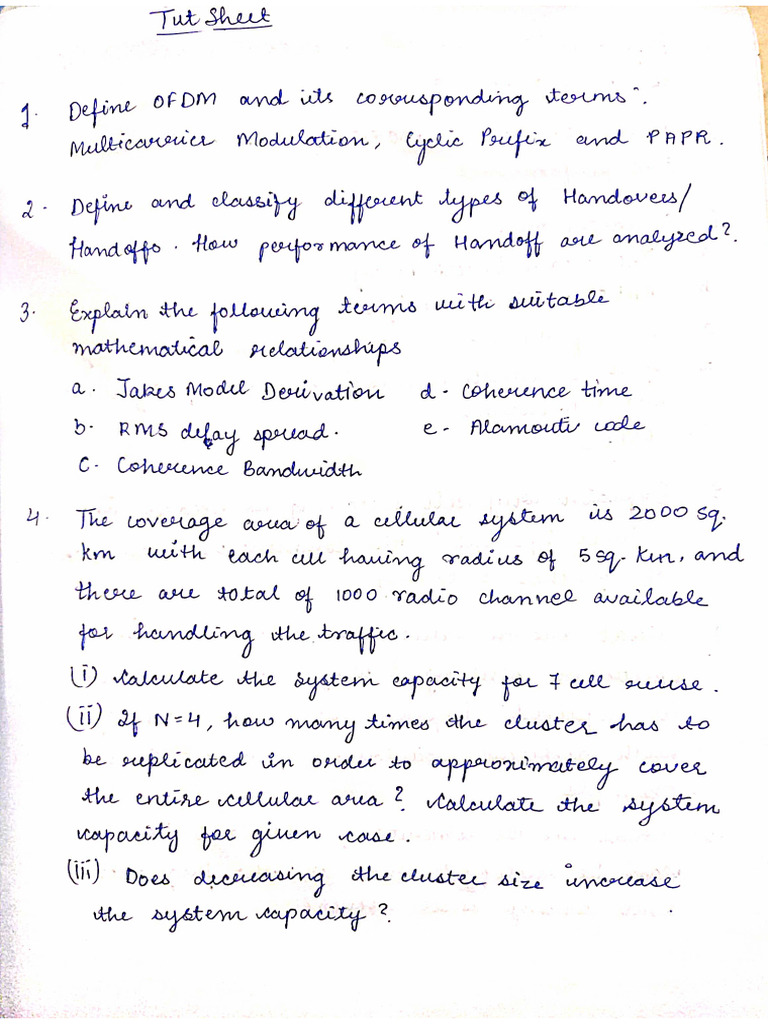 Tut Sheet
1. Define OFDM and its corresponding terms:
Multicarrier Modulation, Cyclic Prefix and PAPR.
2. Define and classify different types of Handovers/
Handoffs. How performance of Handoff are analyzed?.
3. Explain the following terms with suitable
mathematical relationships
a. Jakes Model Derivation d - Coherence time
b. RMS delay spread. e - Alamouti code
C. Coherence Bandwidth
4. The coverage area of a cellular system is 2000 sq.
km with each cell having radius of 5 sq. km, and
there are total of 1000 radio channel available
for handling the traffic.
(i) Calculate the system capacity for 7 cell reuse.
(ii) If N=4, how many times the cluster has to
be replicated in order to approximately cover
the entire cellular area? Calculate the system
capacity for given case.
(iii) Does decreasing the cluster size increase
the system capacity?